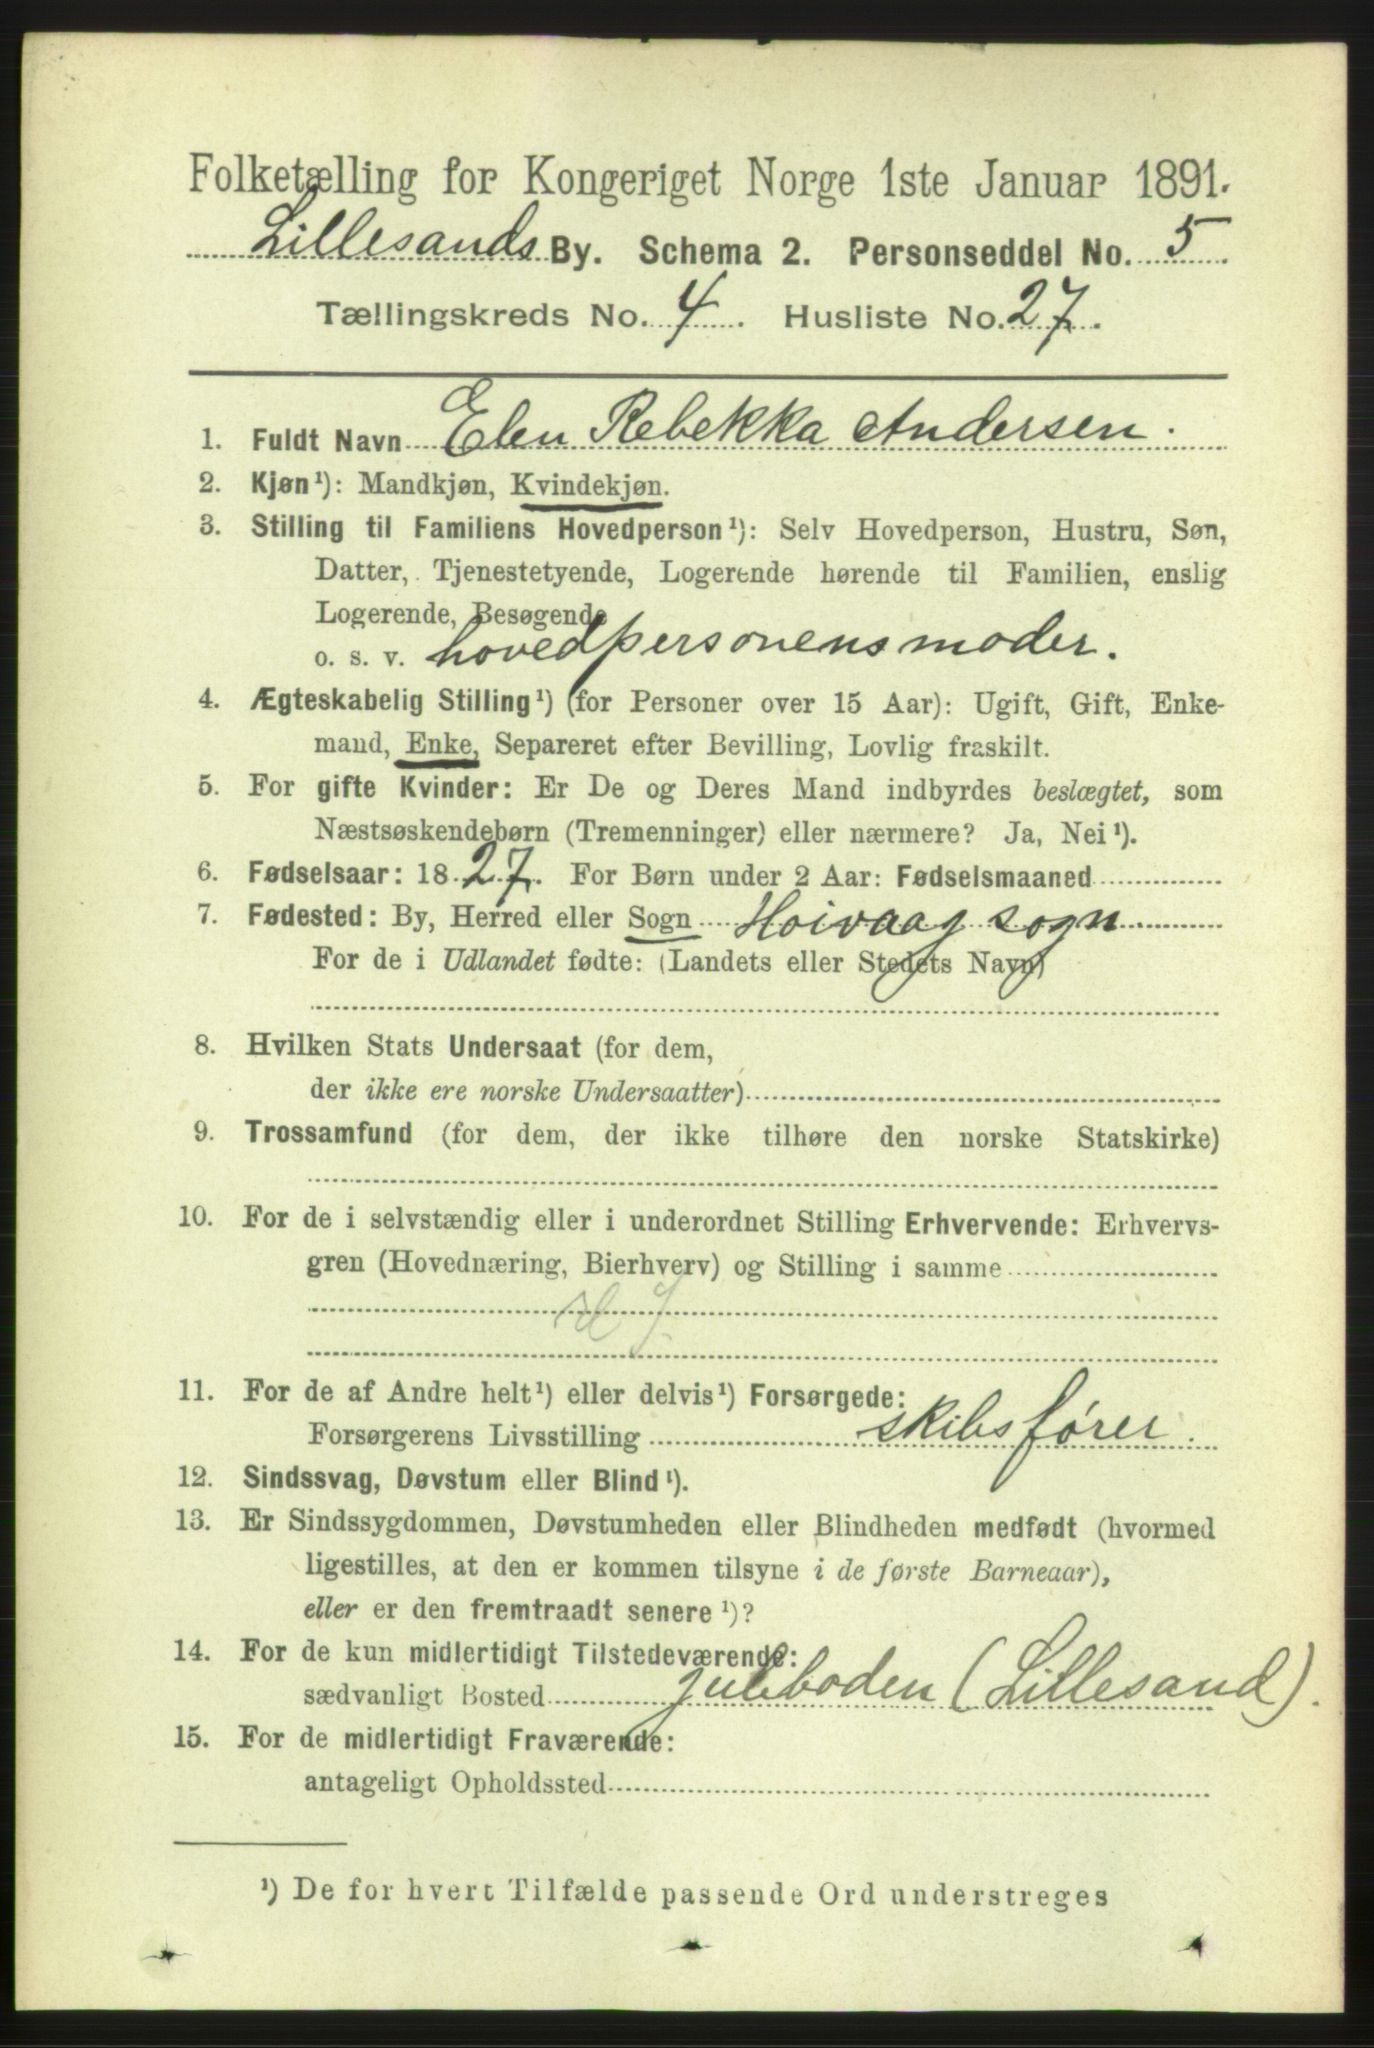 Folketælling for Kongeriget Norge 1ste Januar 1891.
Lillesands By. Schema 2. Personseddel No. 5.
Tællingskreds No. 4. Husliste No. 27.
1. Fuldt Navn Elen Rebekka Andersen.
2. Kjøn¹): Mandkjøn, Kvindekjøn.
3. Stilling til Familiens Hovedperson¹): Selv Hovedperson, Hustru, Søn,
Datter, Tjenestetyende, Logerende hørende til Familien, enslig
Logerende, Besøgende
o. s. v. hovedpersonens moder.
4. Ægteskabelig Stilling¹) (for Personer over 15 Aar): Ugift, Gift, Enke-
mand, Enke, Separeret efter Bevilling, Lovlig fraskilt.
5. For gifte Kvinder: Er De og Deres Mand indbyrdes beslægtet, som
Næstsøskendebørn (Tremenninger) eller nærmere? Ja, Nei¹).
6. Fødselsaar: 1827. For Børn under 2 Aar: Fødselsmaaned
7. Fødested: By, Herred eller Sogn Hoivaag sogn
For de i Udlandet fødte: (Landets eller Stedets Navn)
8. Hvilken Stats Undersaat (for dem,
der ikke ere norske Undersaatter)
9. Trossamfund (for dem, der ikke tilhøre den norske Statskirke)
10. For de i selvstændig eller i underordnet Stilling Erhvervende: Erhvervs-
gren (Hovednæring, Bierhverv) og Stilling i samme
11. For de af Andre helt¹) eller delvis¹) Forsørgede:
Forsørgerens Livsstilling skibsfører.
12. Sindssvag, Døvstum eller Blind¹).
13. Er Sindssygdommen, Døvstumheden eller Blindheden medfødt (hvormed
ligestilles, at den er kommen tilsyne i de første Barneaar),
eller er den fremtraadt senere¹)?
14. For de kun midlertidigt Tilstedeværende:
sædvanligt Bosted juleboden (Lillesand).
15. For de midlertidigt Fraværende:
antageligt Opholdssted
¹) De for hvert Tilfælde passende Ord understreges